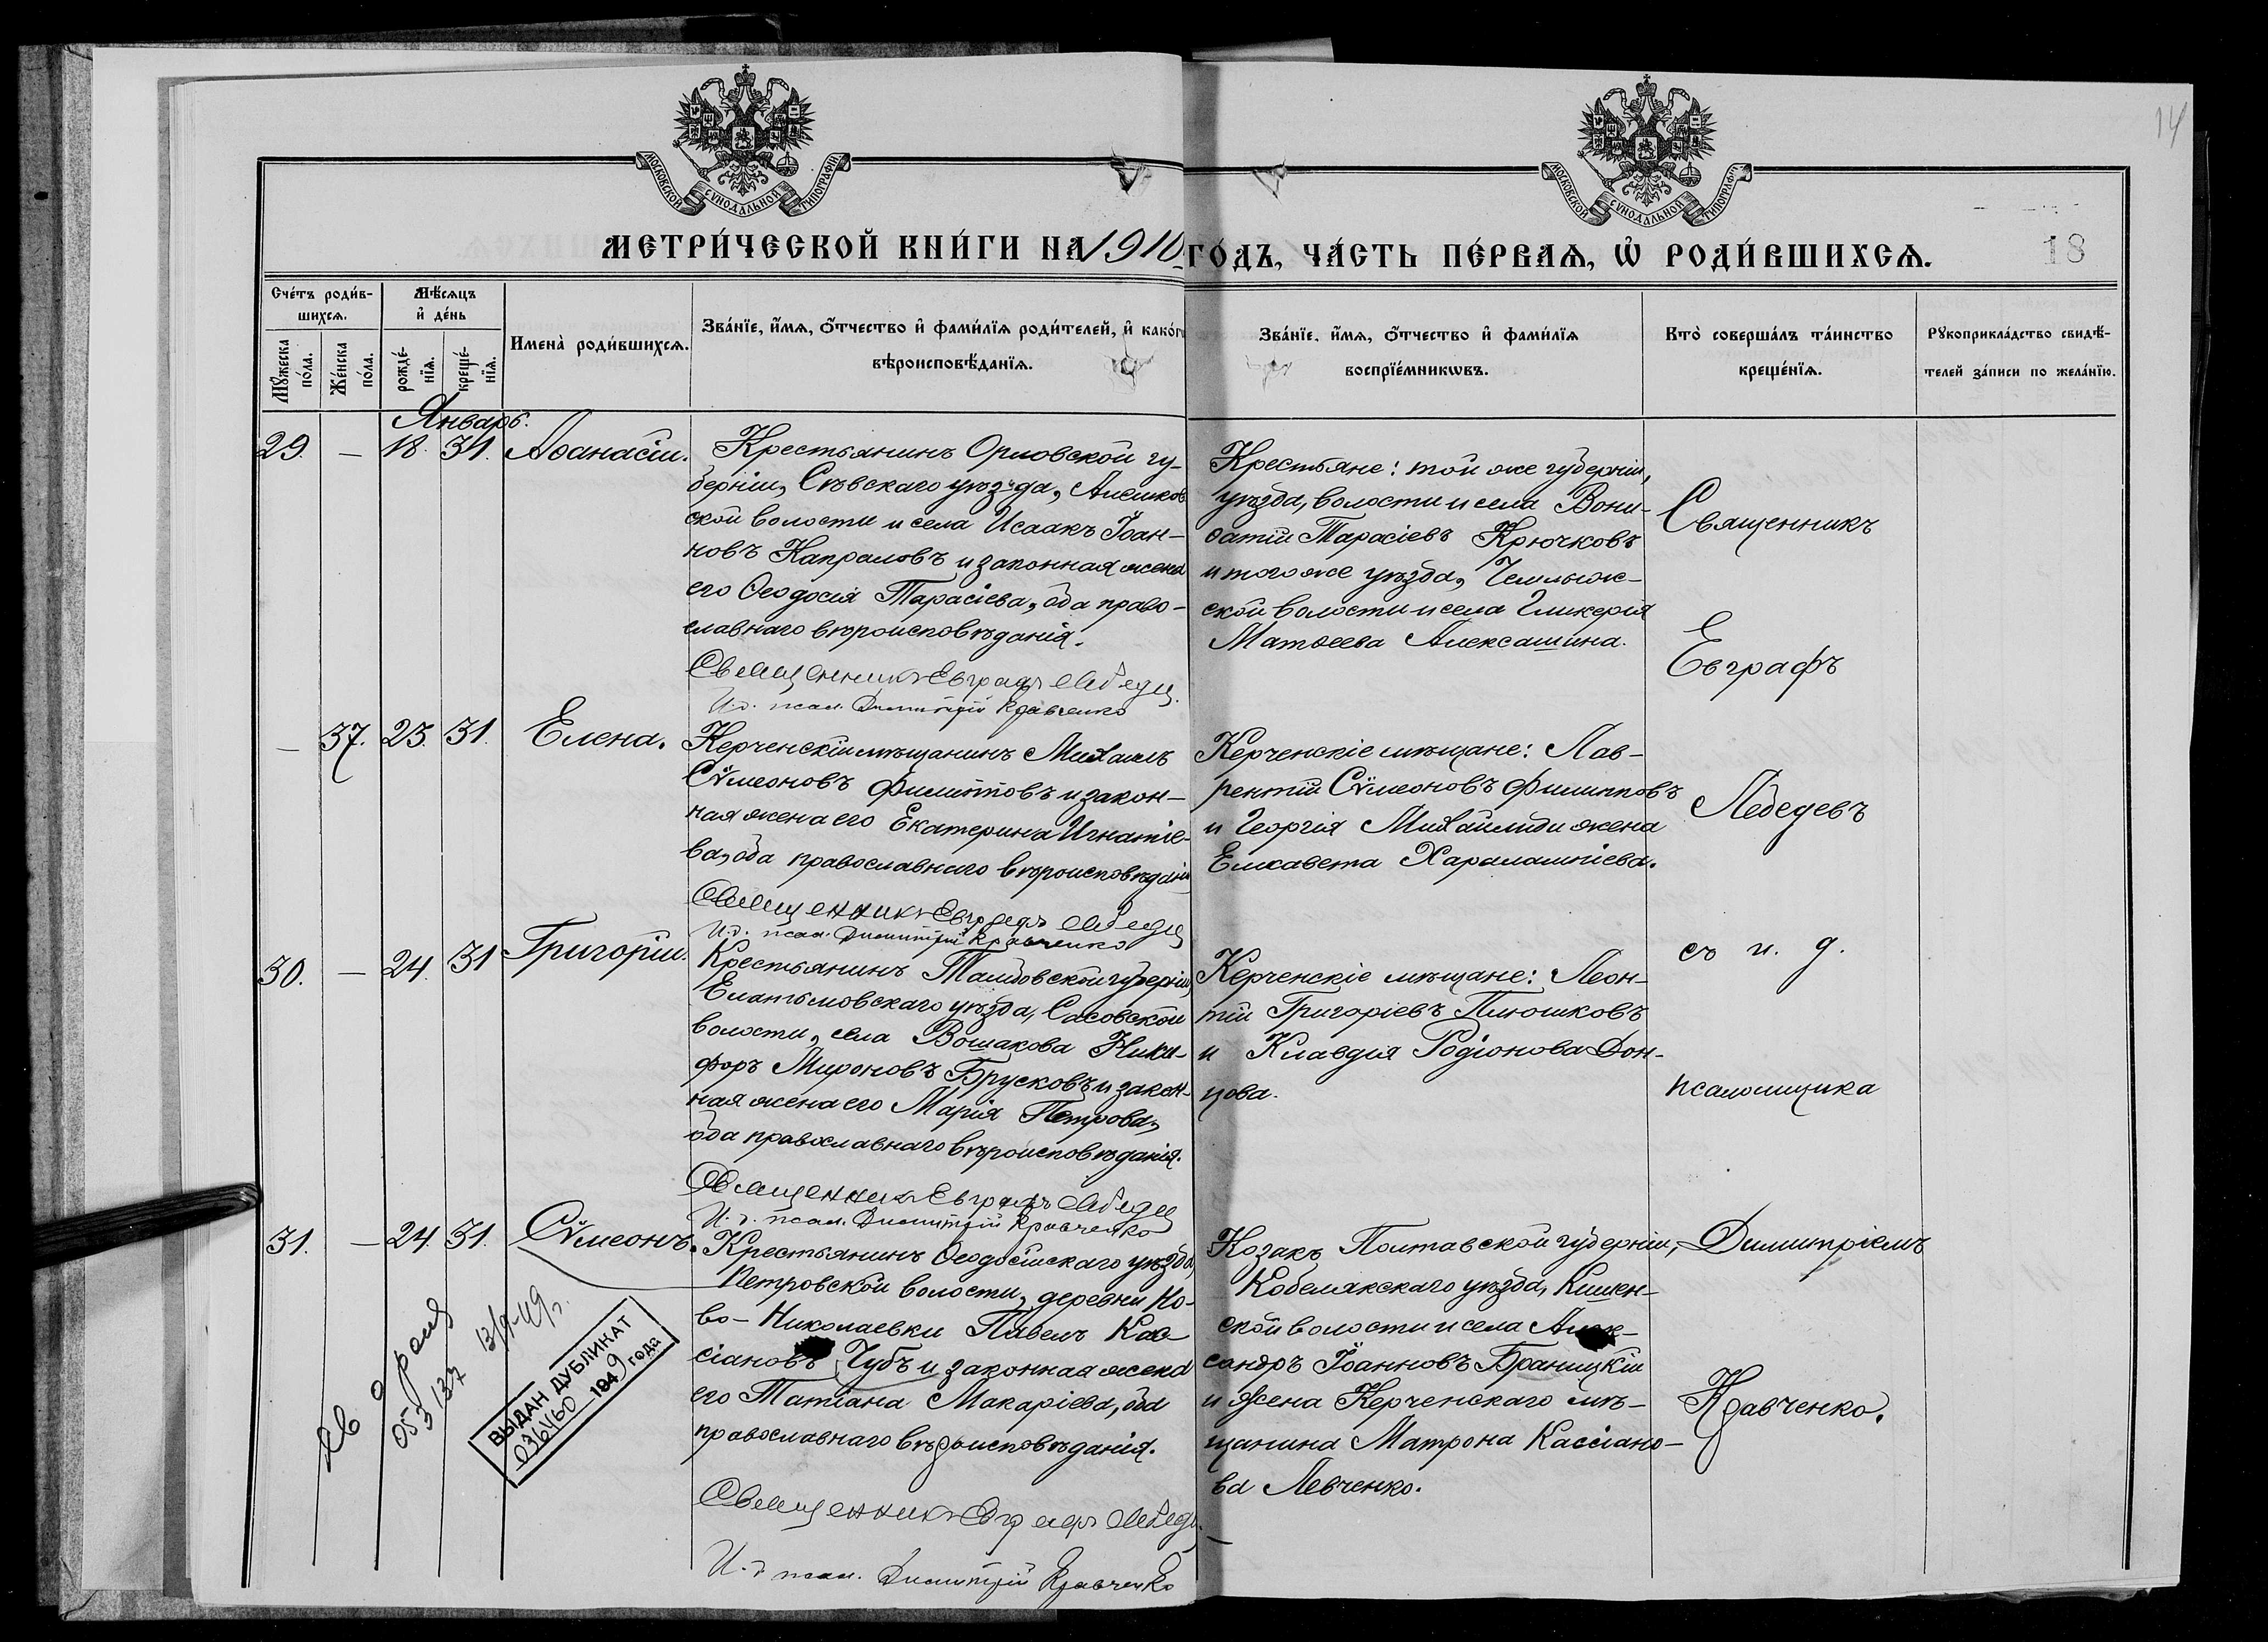 14
МОСКОВСКОЙ СѴНОДАЛЬНОЙ ТИПОГРАФІИ
МОСКОВСКОЙ СѴНОДАЛЬНОЙ ТИПОГРАФІИ
МЕТРИ́ЧЕСКОЙ КНИ́ГИ НА 1910 ГО́ДЪ, ЧА́СТЬ ПЕ́РВАѦ, Ѡ҆ РОДИ́ВШИХСѦ.
18
Счётъ роди́в-
шихсѧ.
Мꙋ́жеска по́ла.
Же́нска по́ла.
Мѣ́сѧцъ
и҆ де́нь
рожде́-
нїѧ.
креще́-
нїѧ.
Имена̀ роди́вшихсѧ.
Зва́нїе, и҆́мѧ, ѻ҆́тчество и҆ фами́лїѧ роди́телей, и҆ како́гѡ
вѣроисповѣ́данїѧ.
Зва́нїе, и҆́мѧ, ѻ҆́тчество и҆ фами́лїѧ
воспрїе́мникѡвъ.
Кто̀ соверша́лъ та́инство
креще́нїѧ.
Рꙋкоприкла́дство свидѣ́-
телей за́писи по жела́нїю.
Январь.
29. — 18. 31. Аѳанасій.
Крестьянинъ Орловской гу-
берніи, Сѣвскаго уѣзда, Алешков
ской волости и села Исаакъ Іоан-
новъ Капраловъ и законная жена
его Ѳеодосія Тарасіева, оба право-
славнаго вѣроисповѣданія.
Священникъ Евграфъ Лебедев
И. д. псал. Димитрій Кравченко
Крестьяне: той же губерніи,
уѣзда, волости и села Вони-
фатій Тарасіевъ Крючковъ
и того же уѣзда, Чемлыж-
ской волости и села Гликерія
Матѳеева Алексашина.
Священникъ
Евграфъ
Лебедевъ
съ и. д.
псаломщика
Димитріемъ
Кравченко.
— 37. 23. 31. Елена.
Керченскій мѣщанинъ Михаилъ
Сѵмеоновъ Филипповъ и закон-
ная жена его Екатерина Игнатіе-
ва, оба православнаго вѣроисповѣданія
Священникъ Евграфъ Лебедев
И. д. псал. Димитрій Кравченко
Керченскіе мѣщане: Лав-
рентій Сѵмеоновъ Филипповъ
и Георгія Михайлиди жена
Елисавета Харалампіева.
30. — 24. 31 Григорій.
Крестьянинъ Тамбовской губерніи,
Елатьмовскаго уѣзда, Сасовской
волости, села Вошакова Ники-
форъ Мироновъ Брусковъ и закон-
ная жена его Марія Петрова,
оба православнаго вѣроисповѣданія.
Священникъ Евграфъ Лебедев
И. д. псал. Димитрій Кравченко
Керченскіе мѣщане: Леон-
тій Григоріевъ Плюшковъ
и Клавдія Родіонова Дон-
цова.
31. — 24. 31. Сѵмеонъ.
Крестьянинъ Ѳеодосійскаго уѣзда,
Петровской волости, деревни Но-
во-Николаевки Павелъ Кас-
сіановъ Чубъ и законная жена
его Татіана Макаріева, оба
православнаго вѣроисповѣданія.
Священникъ Евграфъ Лебедев
И. д. псал. Димитрій Кравченко
Козакъ Полтавской губерніи,
Кобелякскаго уѣзда, Кишен-
ской волости и села Алек-
сандръ Іоанновъ Браницкій
и жена Керченскаго мѣ-
щанина Матрона Кассіано-
ва Левченко.
13/9-49 г.
ВЫДАН ДУБЛИКАТ
036460 1949 года